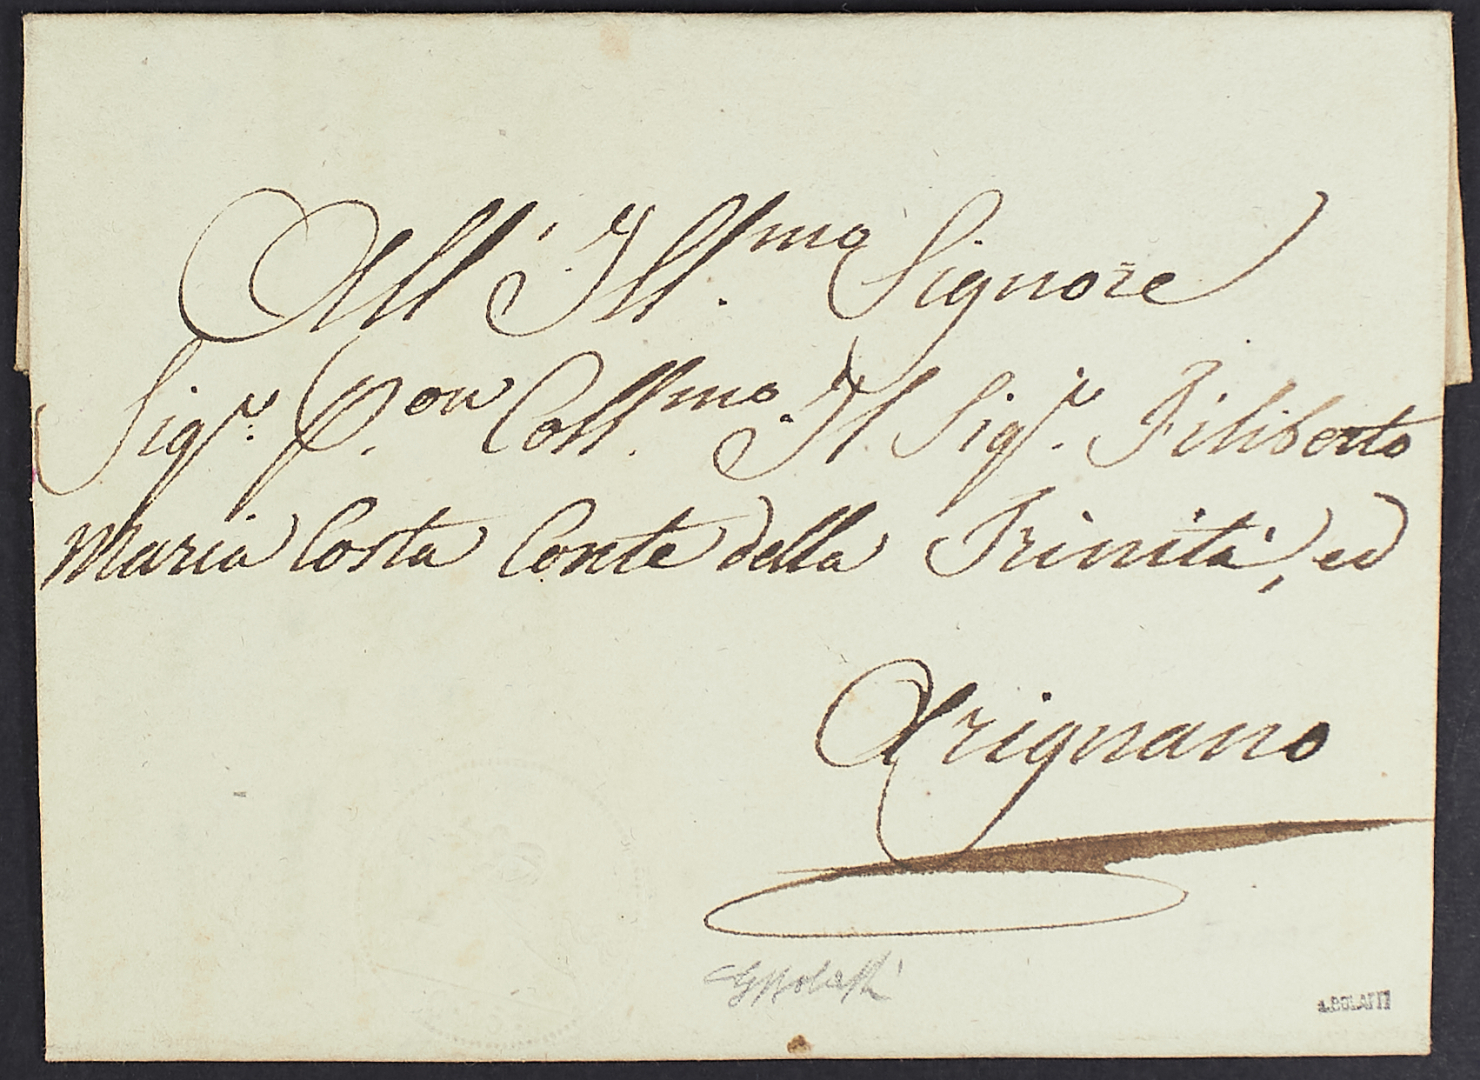 All' Ill.mo Signore
Sig.r P.on Coll.mo Il Sig.r Filiberto
Maria Costa Conte della Trinità, ed
Arignano
A. BOLAFFI